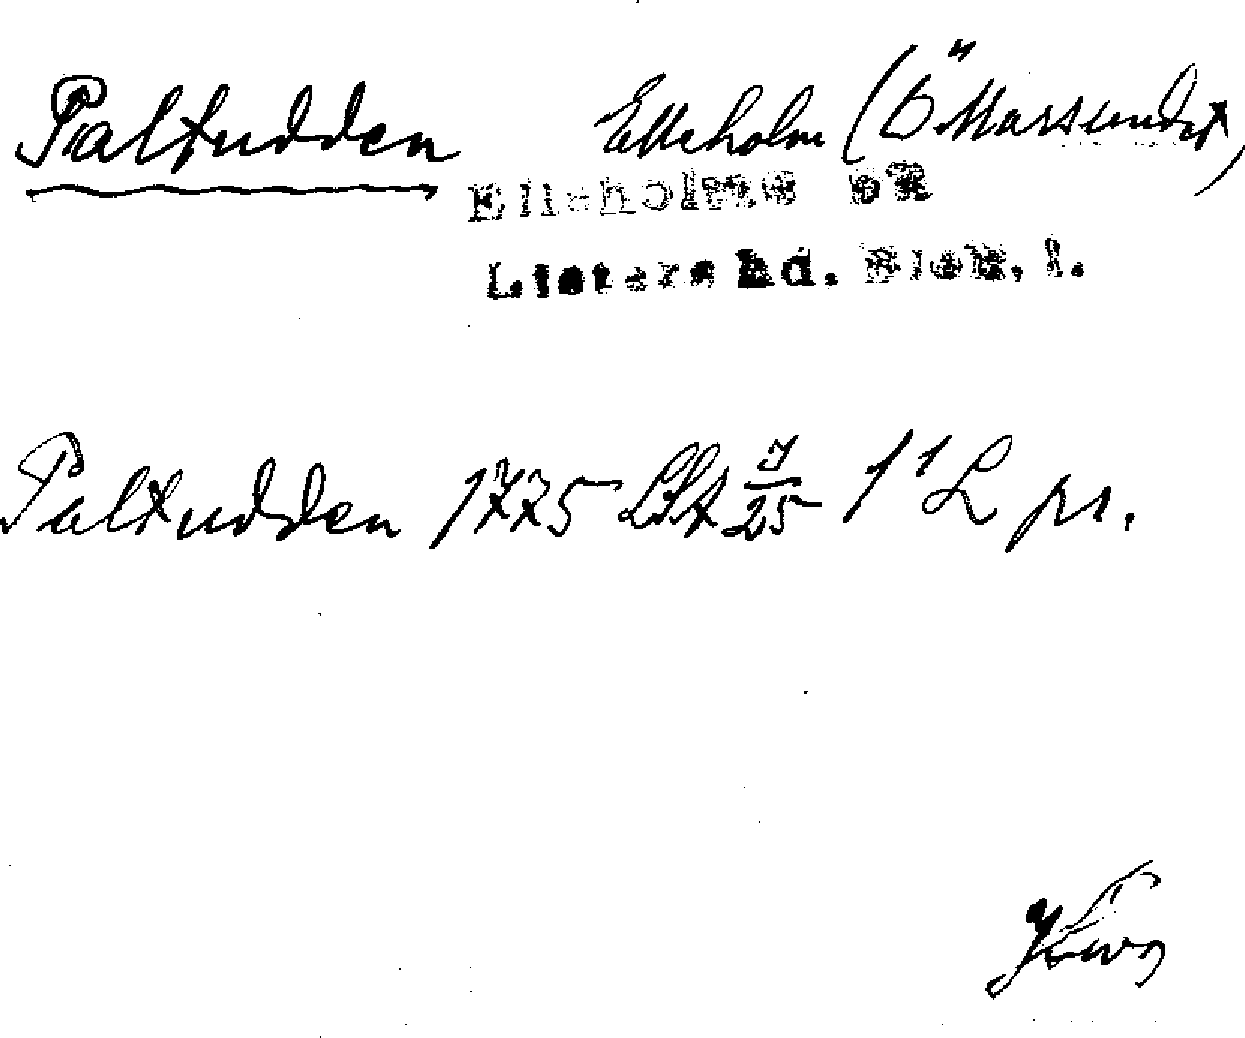 Paltudden Elleholm (Ö Marsundet)
Elleholms sn
Listers hd. Blek. l.
Paltudden 1775 LSA 7/25 1¹ L pr.